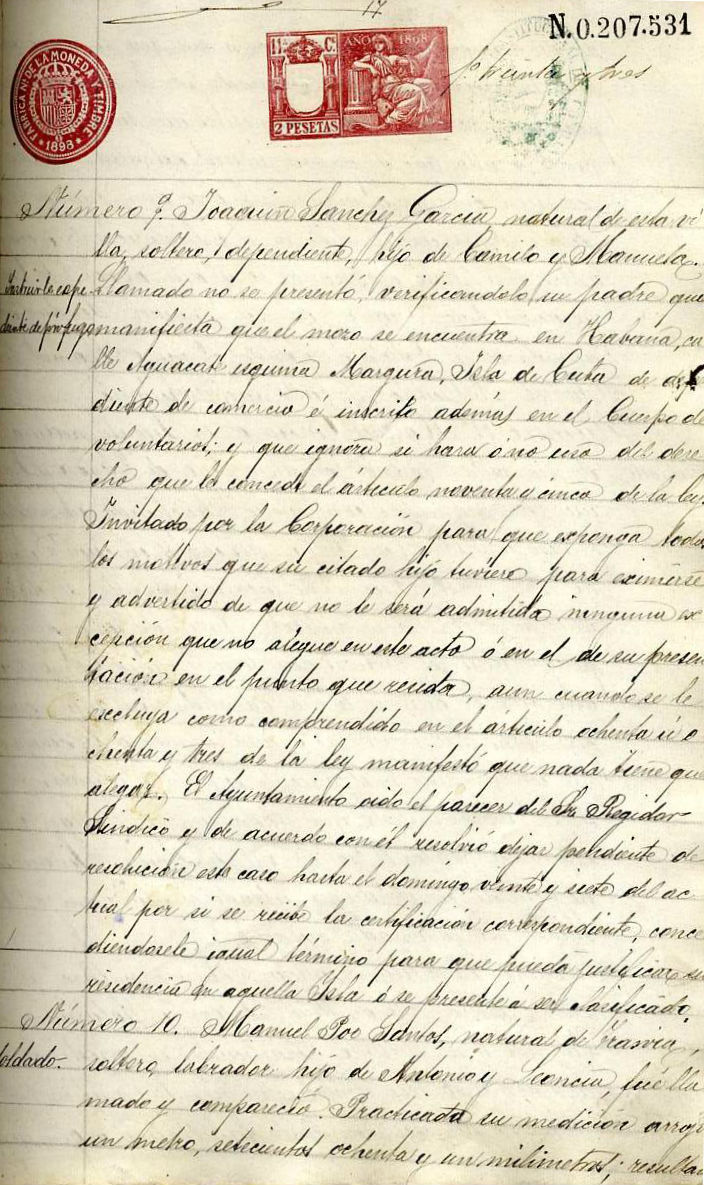 17
N.0.207.531
FABRICA NL DE LA MONEDA Y TIMBRE
* 1898 *
11ª Cª
AÑO 1898
2 PESETAS
treinta y tres
Número 9. Joaquin Sanchez Garcia, natural de esta vi
lla, soltero, dependiente, hijo de Camilo y Manuela.
Instruirle espe
diente de prófugo
Llamado no se presentó, verificandolo su padre que
manifiesta que el mozo se encuentra en Habana, ca
lle Aguacate esquina Margura, Isla de Cuba de depen
diente de comercio é inscrito además en el Cuerpo de
voluntarios; y que ignora si hara ó no uso del dere
cho que le concede el árticulo noventa y cinco de la ley.
Invitado por la Corporación para que exponga todos
los motivos que su citado hijo tuviere para eximirse
y advertido de que no le será admitida ninguna ex
cepción que no alegue en este acto ó en el de su presen
tación en el punto que resida, aun cuando se le
excluya como comprendido en el árticulo ochenta ú o
chenta y tres de la ley manifestó que nada tiene que
alegar. El Ayuntamiento oido el parecer del Sr. Regidor
Sindico y de acuerdo con él resolvió dejar pendiente de
resolución este caso hasta el domingo veinte y siete del ac
tual por si se recibe la certificación correspondiente, conce
diendosele igual término para que pueda justificar su
residencia en aquella Isla ó se presente á ser clasificado.
Número 10. Manuel Poo Santos, natural de
soldado.
soltero, labrador hijo de Antonio y Leoncia, fué lla
mado y compareció. Practicada su medición arroja
un metro, setecientos ochenta y un milimetros; resultan